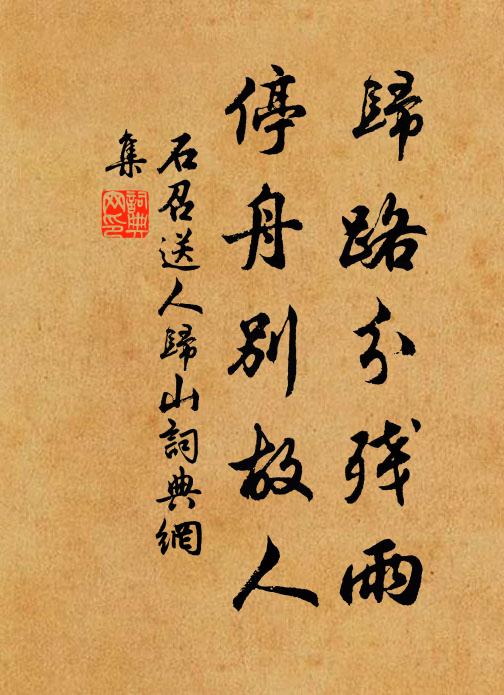 歸路分殘雨
停舟別故人
石召送人歸山詞典網
集
詞典
网印